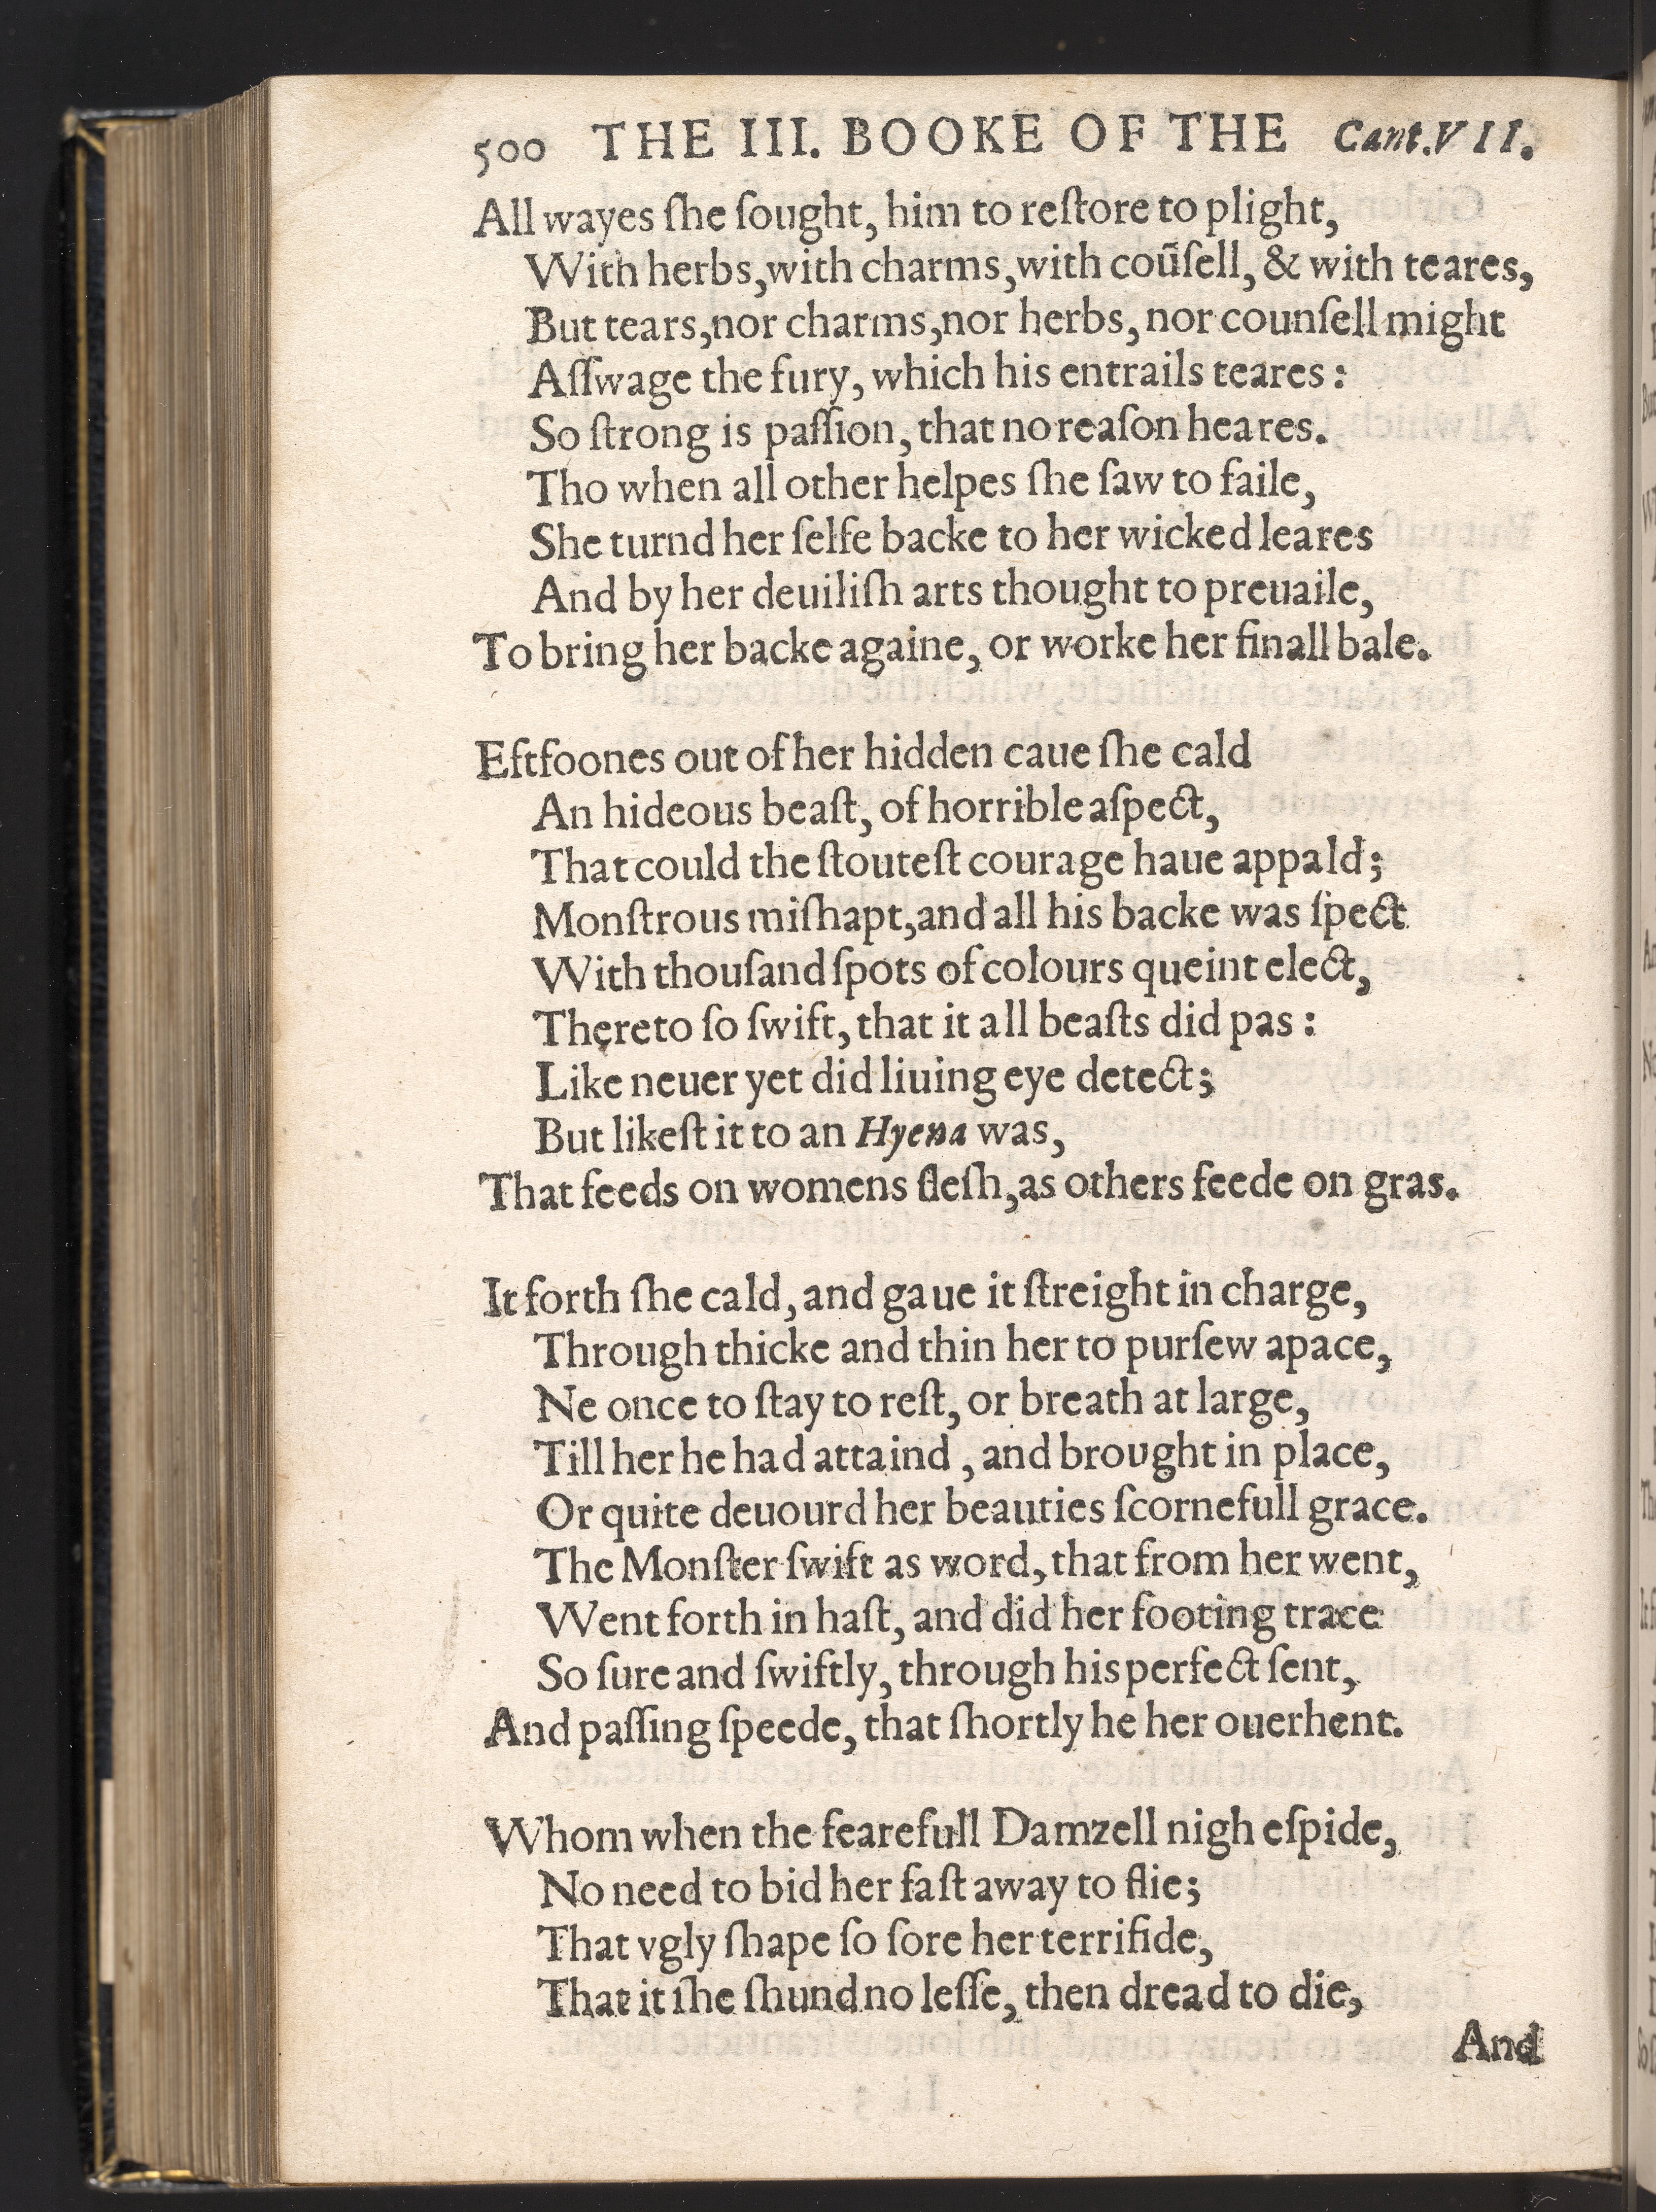 500 THE III. BOOKE OF THE Cant.VII.
All wayes ſhe ſought, him to reſtore to plight,
With herbs,with charms,with coũſell, & with teares,
But tears,nor charms,nor herbs, nor counſell might
Aſſwage the fury, which his entrails teares:
So ſtrong is paſſion, that no reaſon heares.
Tho when all other helpes ſhe ſaw to faile,
She turnd her ſelfe backe to her wicked leares
And by her deuiliſh arts thought to preuaile,
To bring her backe againe, or worke her finall bale.
Eftſoones out of her hidden caue ſhe cald
An hideous beaſt, of horrible aſpect,
That could the ſtouteſt courage haue appald;
Monſtrous miſhapt,and all his backe was ſpect
With thouſand ſpots of colours queint elect,
Thereto ſo ſwift, that it all beaſts did pas:
Like neuer yet did liuing eye detect;
But likeſt it to an Hyena was,
That feeds on womens fleſh,as others feede on gras.
It forth ſhe cald, and gaue it ſtreight in charge,
Through thicke and thin her to purſew apace,
Ne once to ſtay to reſt, or breath at large,
Till her he had attaind , and brought in place,
Or quite deuourd her beauties ſcornefull grace.
The Monſter ſwift as word, that from her went,
Went forth in haſt, and did her footing trace
So ſure and ſwiftly, through his perfect ſent,
And paſſing ſpeede, that ſhortly he her ouerhent.
Whom when the fearefull Damzell nigh eſpide,
No need to bid her faſt away to flie;
That vgly ſhape ſo ſore her terrifide,
That it ſhe ſhund no leſſe, then dread to die,
And